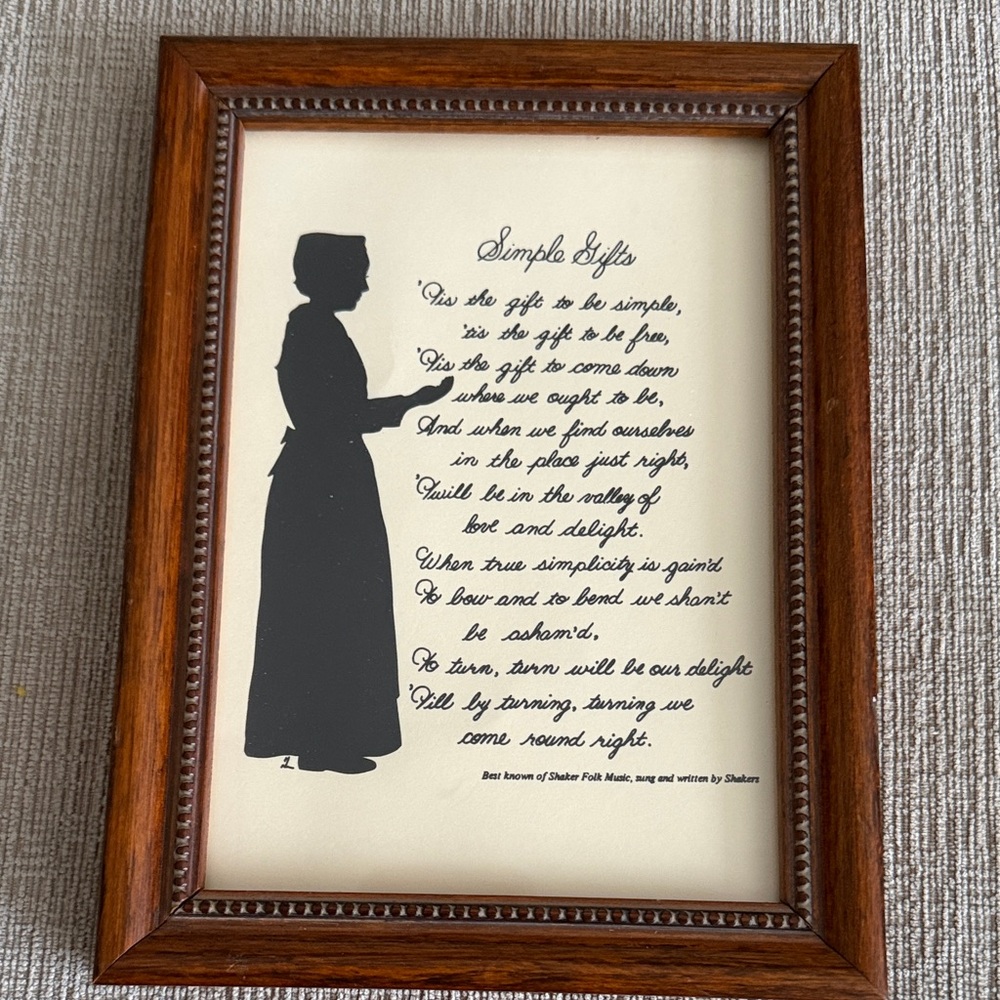 Simple Gifts
'Tis the gift to be simple,
'tis the gift to be free,
'Tis the gift to come down
where we ought to be,
And when we find ourselves
in the place just right,
'Twill be in the valley of
love and delight.
When true simplicity is gain'd
To bow and to bend we shan't
be asham'd,
To turn, turn will be our delight
'Till by turning, turning we
come round right.
Best known of Shaker Folk Music, sung and written by Shakers